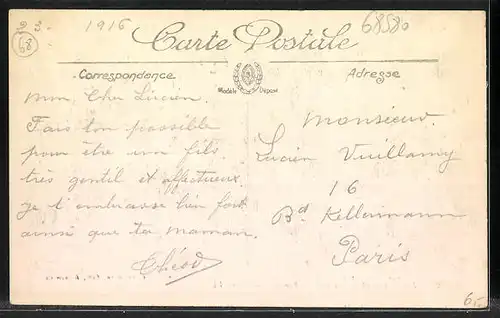 1916
68580
Carte Postale
Correspondance
Adresse
Modèle Déposé
Mon Cher Lucien.
Fais ton possible
pour être un fils
très gentil et affectueux.
Je t'embrasse bien fort
ainsi que ta maman.
Monsieur.
Lucien Vuillamy
16
Bd Kellermann
Paris